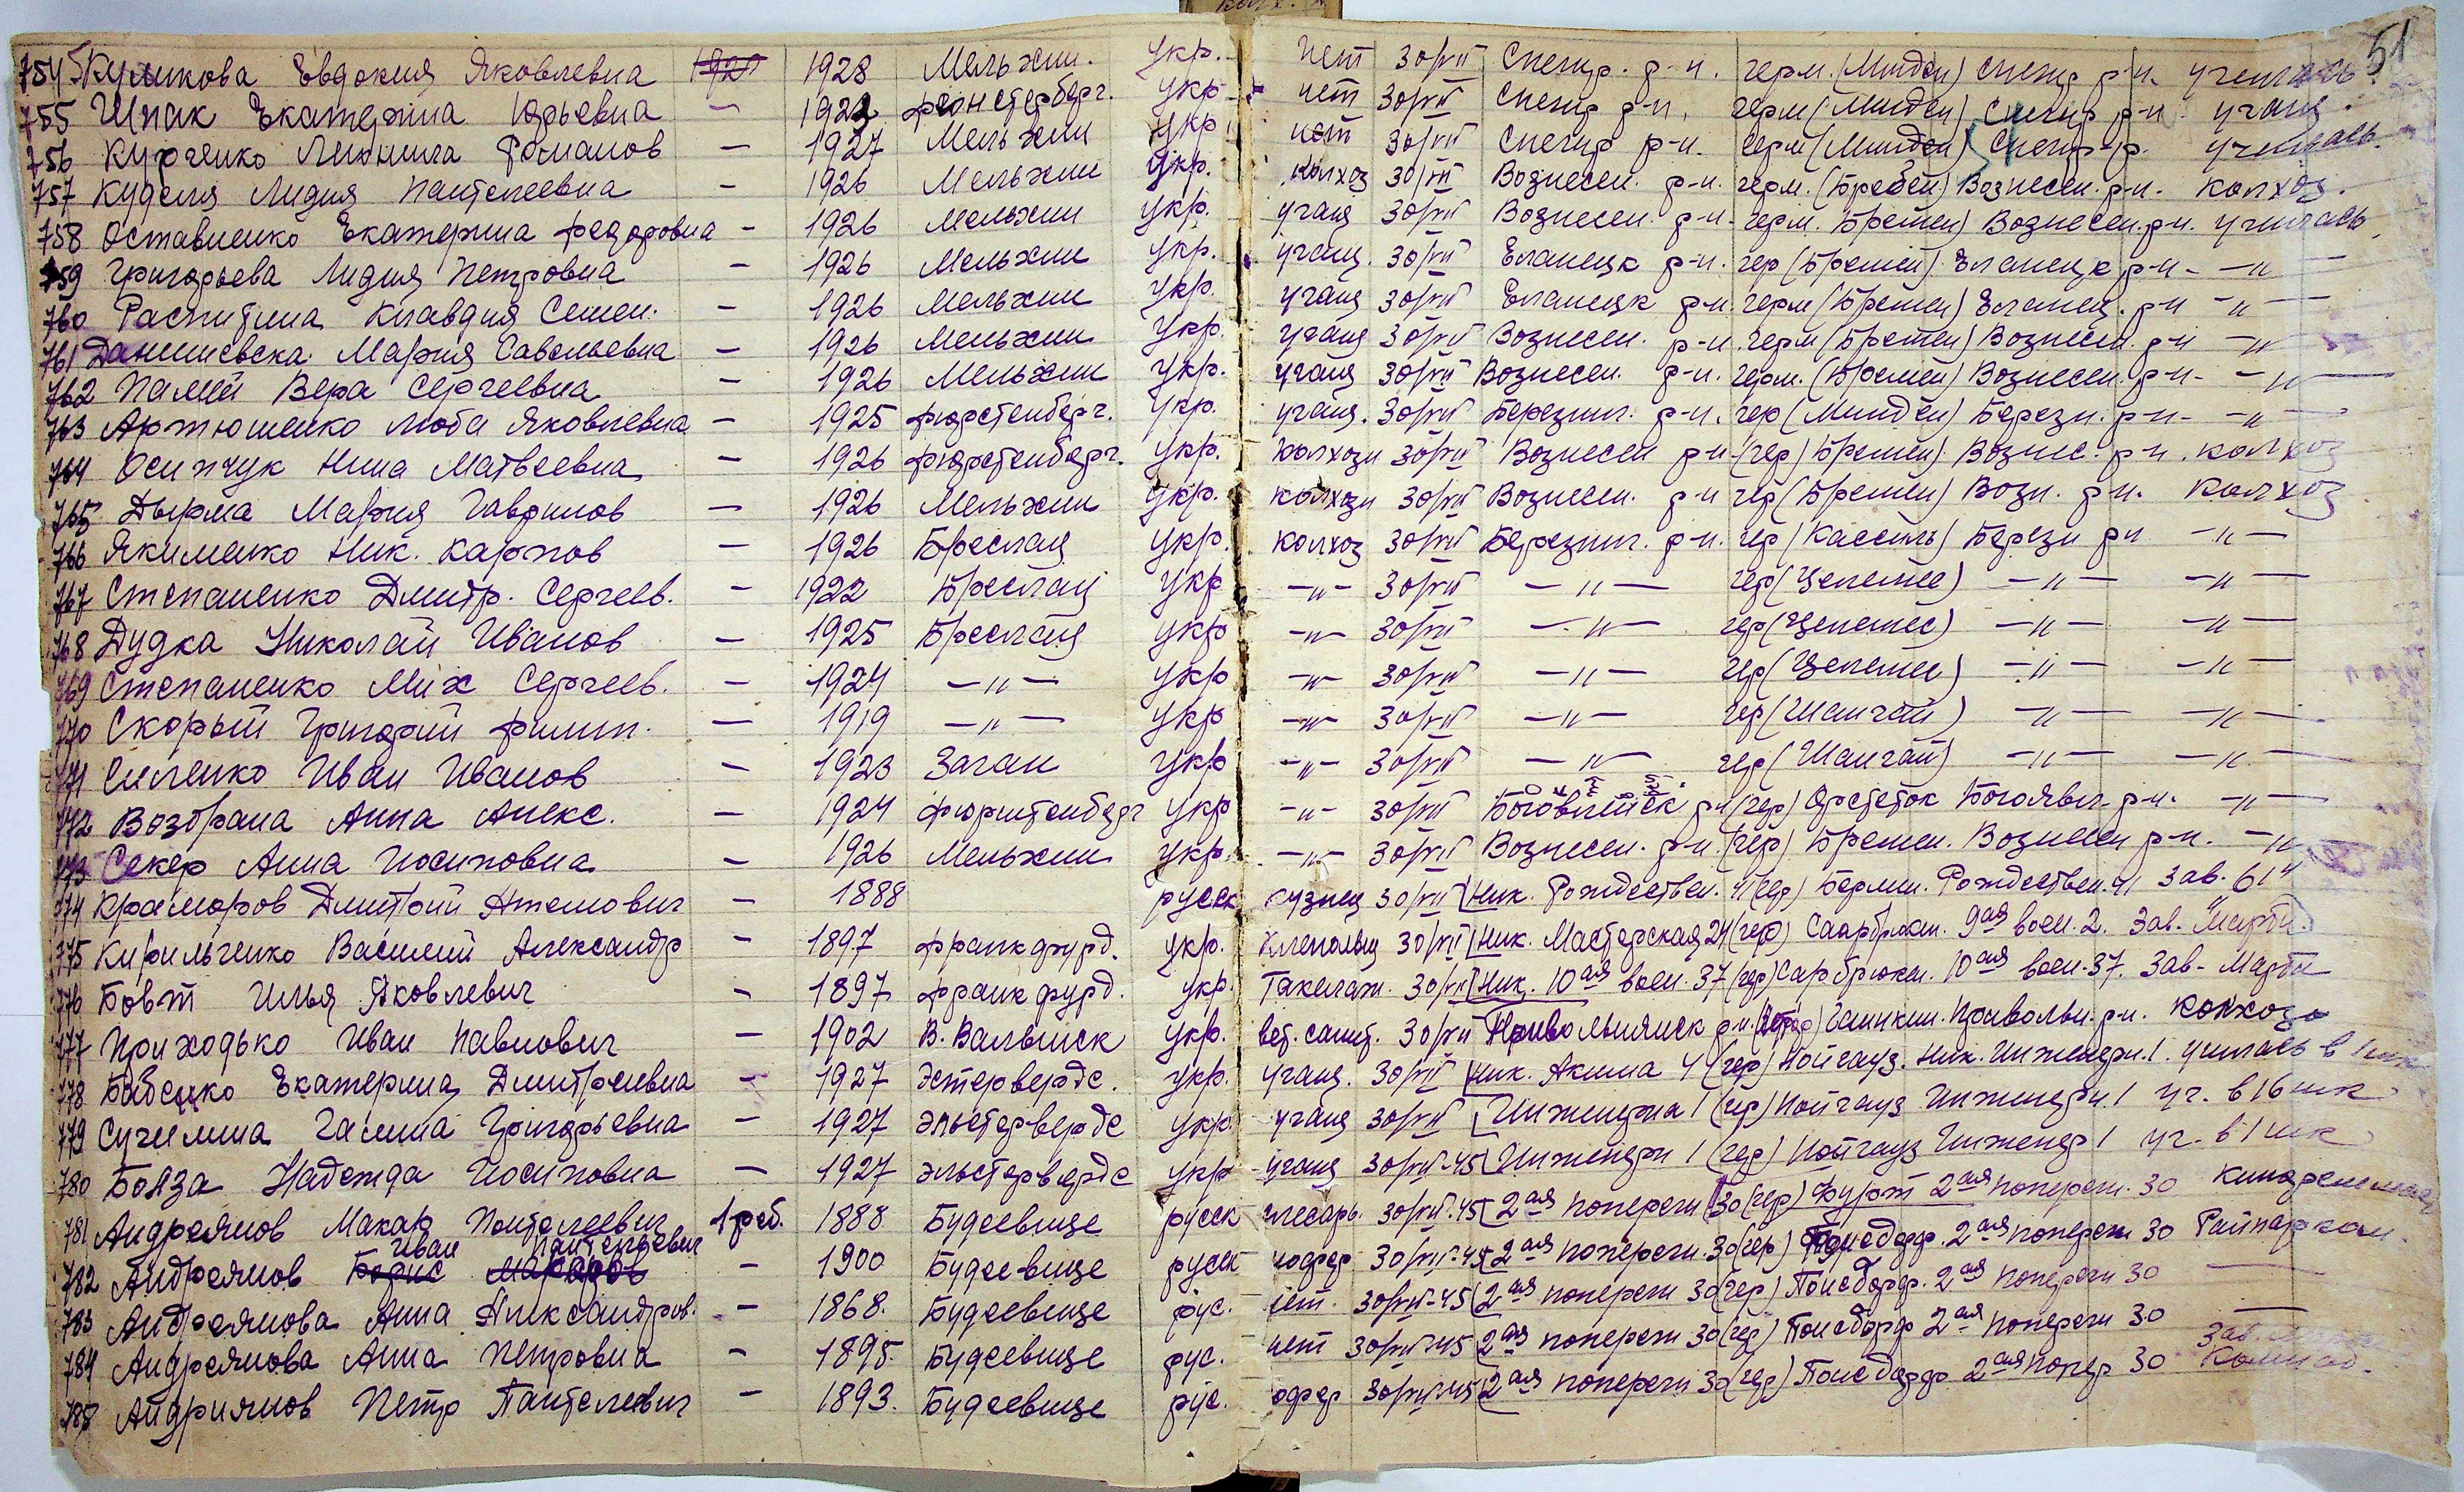 51
754 Куликова Евдокия Яковлевна 1928 Мельхин. Укр. нет 30/VII Снегир. р-н. герм. (Минден) Снегир р-н. училась
755 Шпак Екатерина Юрьевна — 1923 Укр нет 30/VII Снегир р-н. герм (Минден) Снегир р-н учащ.
756 Курченко Людмила Романов — 1927 Мельхин Укр нет 30/VII Снегир р-н. герм (Минден) Снегир р. училась.
757 Куделя Лидия Пантелеевна — 1926 Мельхин Укр. колхоз 30/VII Вознесен. р-н. герм. Вознесен. р-н. колхоз.
758 Оставненко Екатерина Федоровна — 1926 Мельхин Укр. учащ 30/VII Вознесен. р-н. герм. Бремен) Вознесен. р-н. училась
759 Григорьева Лидия Петровна — 1926 Мельхин Укр. учащ. 30/VII Еланецк р-н. гер (Бремен) Еланецк р-н. —"—
760 Распутина Клавдия Семен. — 1926 Мельхин Укр. учащ 30/VII Еланецк р-н. герм (Бремен) Еланец. р-н —"—
761 Мария Савельевна — 1926 Мельхин Укр. учащ 30/VII Вознесен. р-н. герм (Бремен) Вознесен. р-н —"—
762 Палий Вера Сергеевна — 1926 Мельхин Укр. учащ 30/VII Вознесен. р-н. герм. (Бремен) Вознесен. р-н. —"—
763 Артюшенко Люба Яковлевна — 1925 Фюрстенберг. Укр. учащ. 30/VII Березниг. р-н. гер (Минден) Березн. р-н. —"—
764 Осипчук Нина Матвеевна — 1926 Фюрстенберг. Укр. колхозн 30/VII Вознесен р-н (гер) Бремен) Вознес. р-н. колхоз
765 Дырма Мария Гаврилов — 1926 Мельхин Укр. колхозн 30/VII Вознесен. р-н гер (Бремен) Возн. р-н. колхоз
766 Якименко Ник. Карпов — 1926 Бреслау Укр. колхоз 30/VII Березниг. р-н. гер (Кассель) Березн рн —"—
767 Степаненко Дмитр. Сергеев. — 1922 Бреслау Укр —"— 30/VII —"— гер —"— —"—
768 Дудка Николай Иванов — 1925 Бреслау Укр —"— 30/VII —"— гер —"— —"—
769 Степаненко Мих Сергеев. — 1924 —"— Укр —"— 30/VII —"— гер —"— —"—
770 Скорый Григорий Филип. — 1919 —"— Укр —"— 30/VII —"— гер (Шангай) —"— —"—
771 Силенко Иван Иванов — 1923 Заган Укр —"— 30/VII —"— гер (Шангай) —"— —"—
772 Возбрана Анна Алекс. — 1924 Укр —"— 30/VII р-н (гер) Богоявл. р-н. —"—
773 Секер Анна Иосиповна — 1926 Мельхин Укр. —"— 30/VII Вознесен. р-н. (гер) Бремен. Вознесен р-н. —"—
774 Краморов Дмитрий Артемович — 1888 русск кузнец 30/VII Ник. Рождествен. 41 (гер) Берлин. Рождествен. 41 Зав. 61
775 Кирильченко Василий Александр — 1897 франкфурд. Укр. 30/VII Ник. Мастерская 24 (гер) Саарбрюкен. 9ая воен. 2. Зав. "Марти.
776 Бовт Илья Яковлевич — 1897 франкфурд. Укр. Такелаж. 30/VII Ник. 10ая воен. 37 (гер) Сарбрюкен. 10ая воен. 37. Зав. Марти
777 Приходько Иван Павлович — 1902 Укр. вет. санит. 30/VII р-н. Привольн. р-н. колхоз
778 Екатерина Дмитриевна — 1927 Эстерверде. Укр. учащ. 30/VII Ник. Акима 4 (гер) Нойгауз. Ник. Инженерн. 1. училась в 1 шк
779 Галина Григорьевна — 1927 Эльстерверде Укр учащ 30/VII Инженерна 1 (гер) Нойгауз Инженерн. 1 уч. в 16 шк
780 Бояза Надежда Иосиповна — 1927 Эльстерверде Укр учащ 30/VII-45 Инженерн 1 (гер) Нойгауз Инженер 1 уч. в 1 шк
781 Андреянов Макар Пантелеевич 1 реб. 1888 Будеевице русск слесарь. 30/VII.45 2ая поперечн 30 (гер) Фурт 2ая попереч. 30
782 Андреянов Борис Макаров Иван Пантельевич — 1900 Будеевице русск шофер 30/VII-45 2ая поперечн. 30 (гер) 2ая попереч 30
783 Андреянова Анна Александров. — 1868. Будеевице рус. нет. 30/VII-45 2ая поперечн 30 (гер) Поисдорф. 2ая поперечн 30 —
784 Андреянова Анна Петровна — 1895. Будеевице рус. нет 30/VII-45 2ая поперечн 30 (гер) Поисдорф 2ая поперечн 30 —
785 Андриянов Петр Пантелеевич — 1893. Будеевице рус. 30/VII-45 2ая поперечн 30 (гер) Поисдорф 2ая попер 30